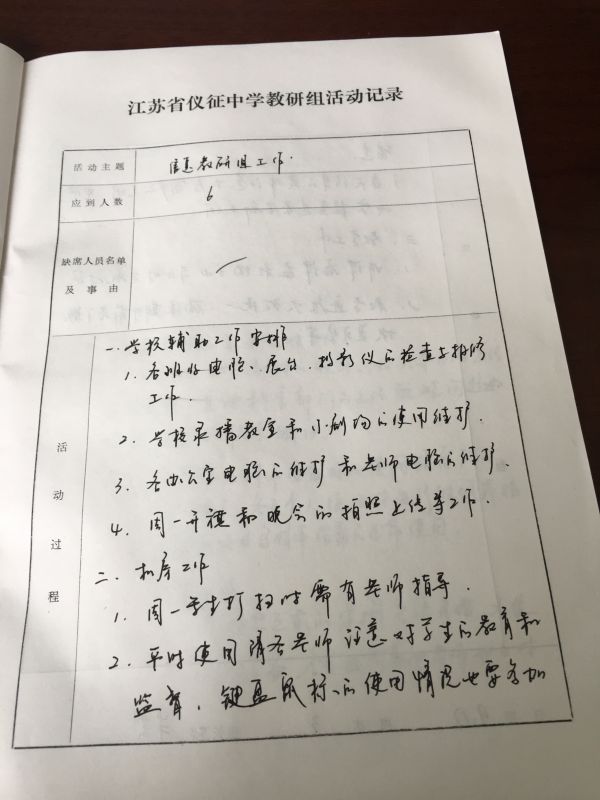 江苏省仪征中学教研组活动记录
活动主题 信息教研组工作.
应到人数 6
缺席人员名单
及事由
活动过程
一.学校辅助工作安排
1.各班级电脑、展台、投影仪的检查与报修
工作.
2.学校录播教室和小剧场的使用维护.
3.各办公室电脑的维护和老师电脑的维护.
4.周一升旗和晚会的拍照上传等工作.
二.机房工作
1.周一学生打扫时需有老师指导.
2.平时使用请各老师注意对学生的教育和
监督,键盘鼠标的使用情况也要多加